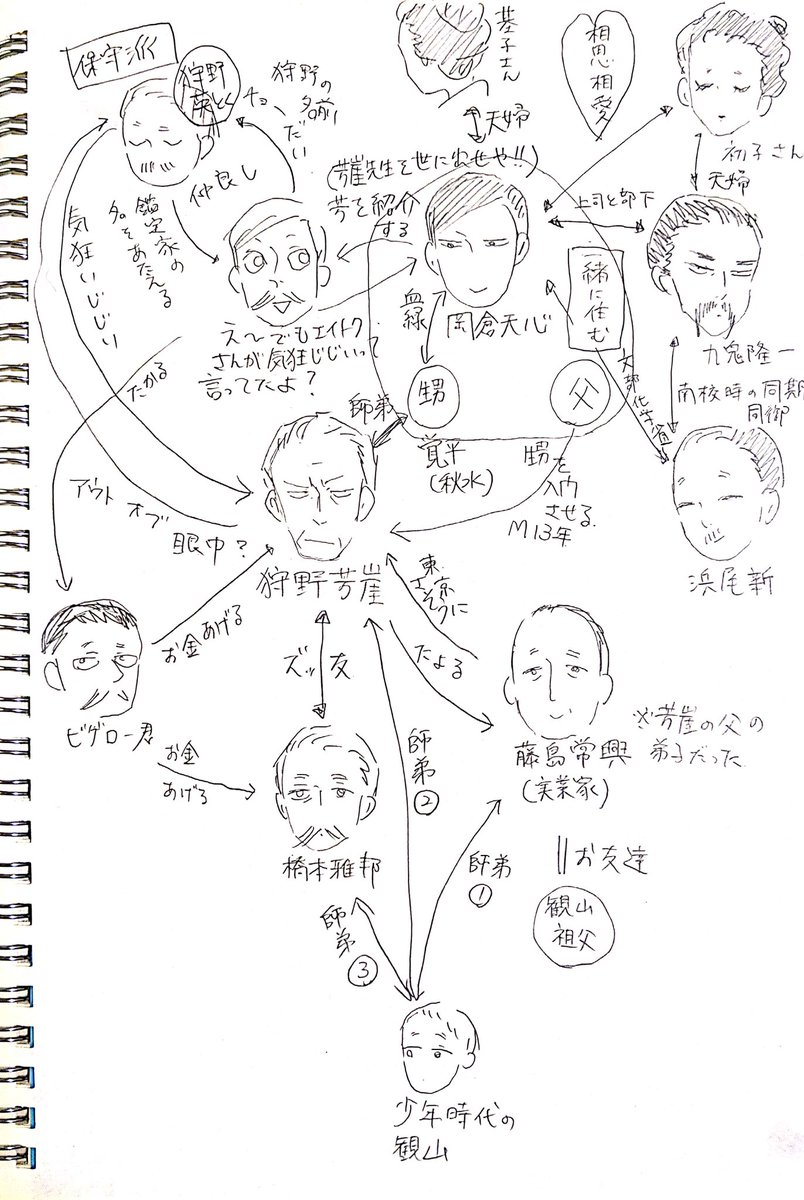 保守派
狩野
永とく
狩野の
名前
ちょーだい
基子さん
夫婦
相思相愛
初子さん
夫婦
(芳崖先生を世に出せや!!)
芳を紹介
する
仲良し
鑑定家の
名をあたえる
気狂いじじい
上司と部下
一緒に住む
血縁
岡倉天心
九鬼隆一
え〜でもエイトク
さんが気狂じじいって
言ってたよ?
甥
父
師弟
覚平
(秋水)
甥を
入門
させる
M13年
南校時の同期
同御
浜尾新
たかる
アウト オブ
眼中?
狩野芳崖
東京
さそうに
たよる
お金あげる
ズッ友
ビゲロー君
お金
あげる
橋本雅邦
藤島常興
(実業家)
※芳崖の父の
弟子だった
師弟
②
師弟
①
お友達
観山
祖父
師弟
③
少年時代の
観山